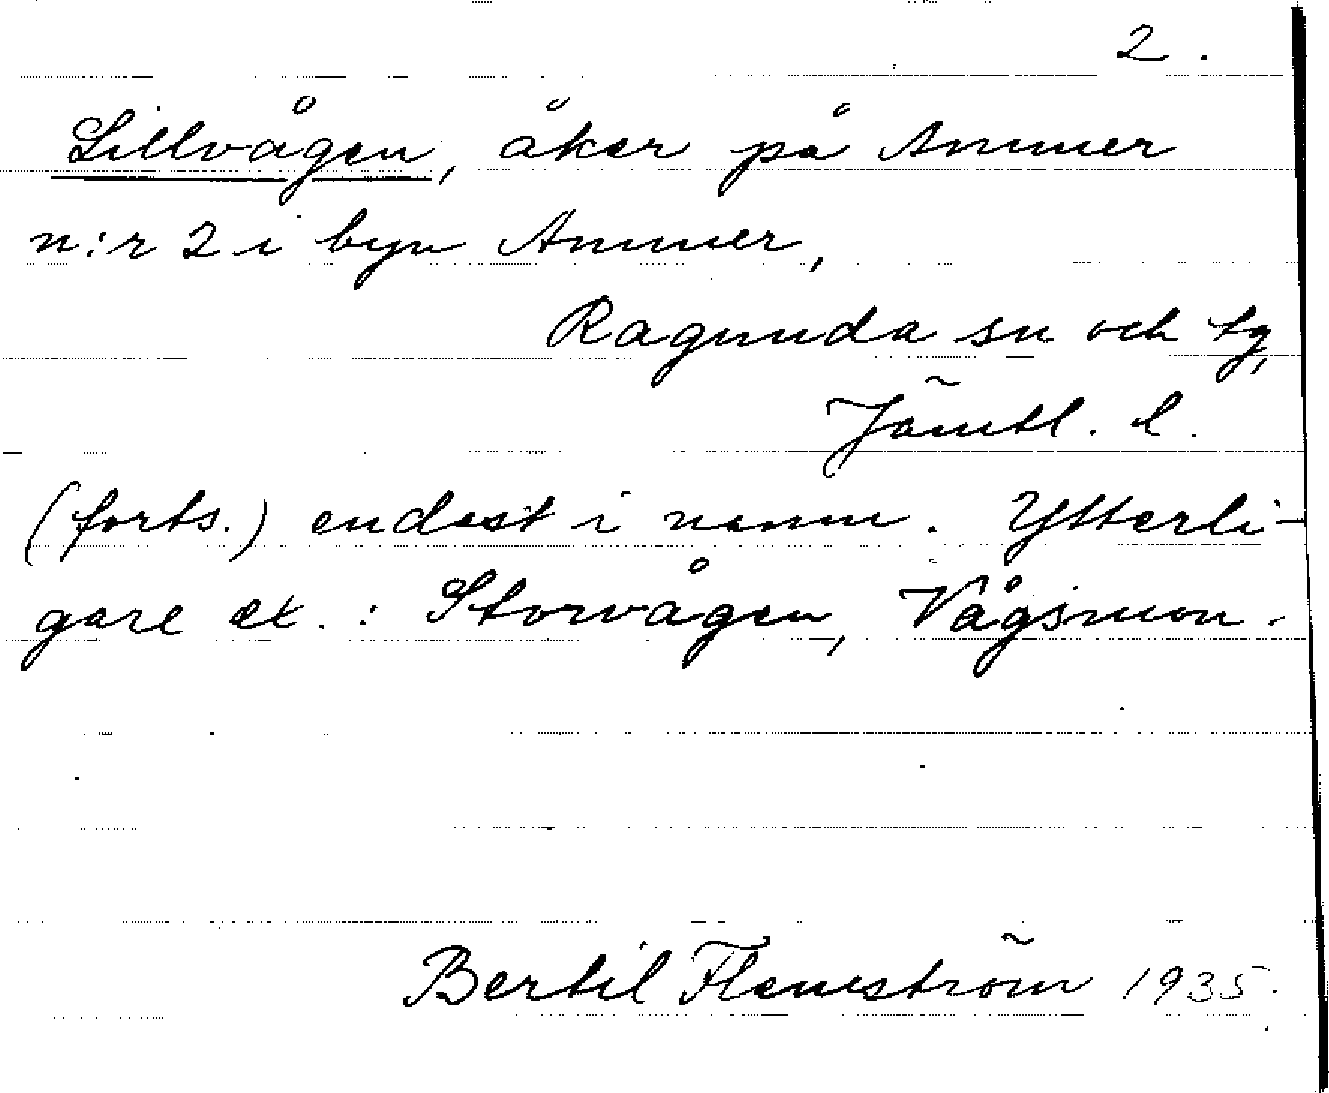 2.
Lillvågen, åker på Ammer
n:r 2 i byn Ammer,
Ragunda sn och tg,
Jämtl. l.
(forts.) endast i namn. Ytterli-
gare ex.: Storvågen, Vågsmon.
Bertil Flemström 1935.